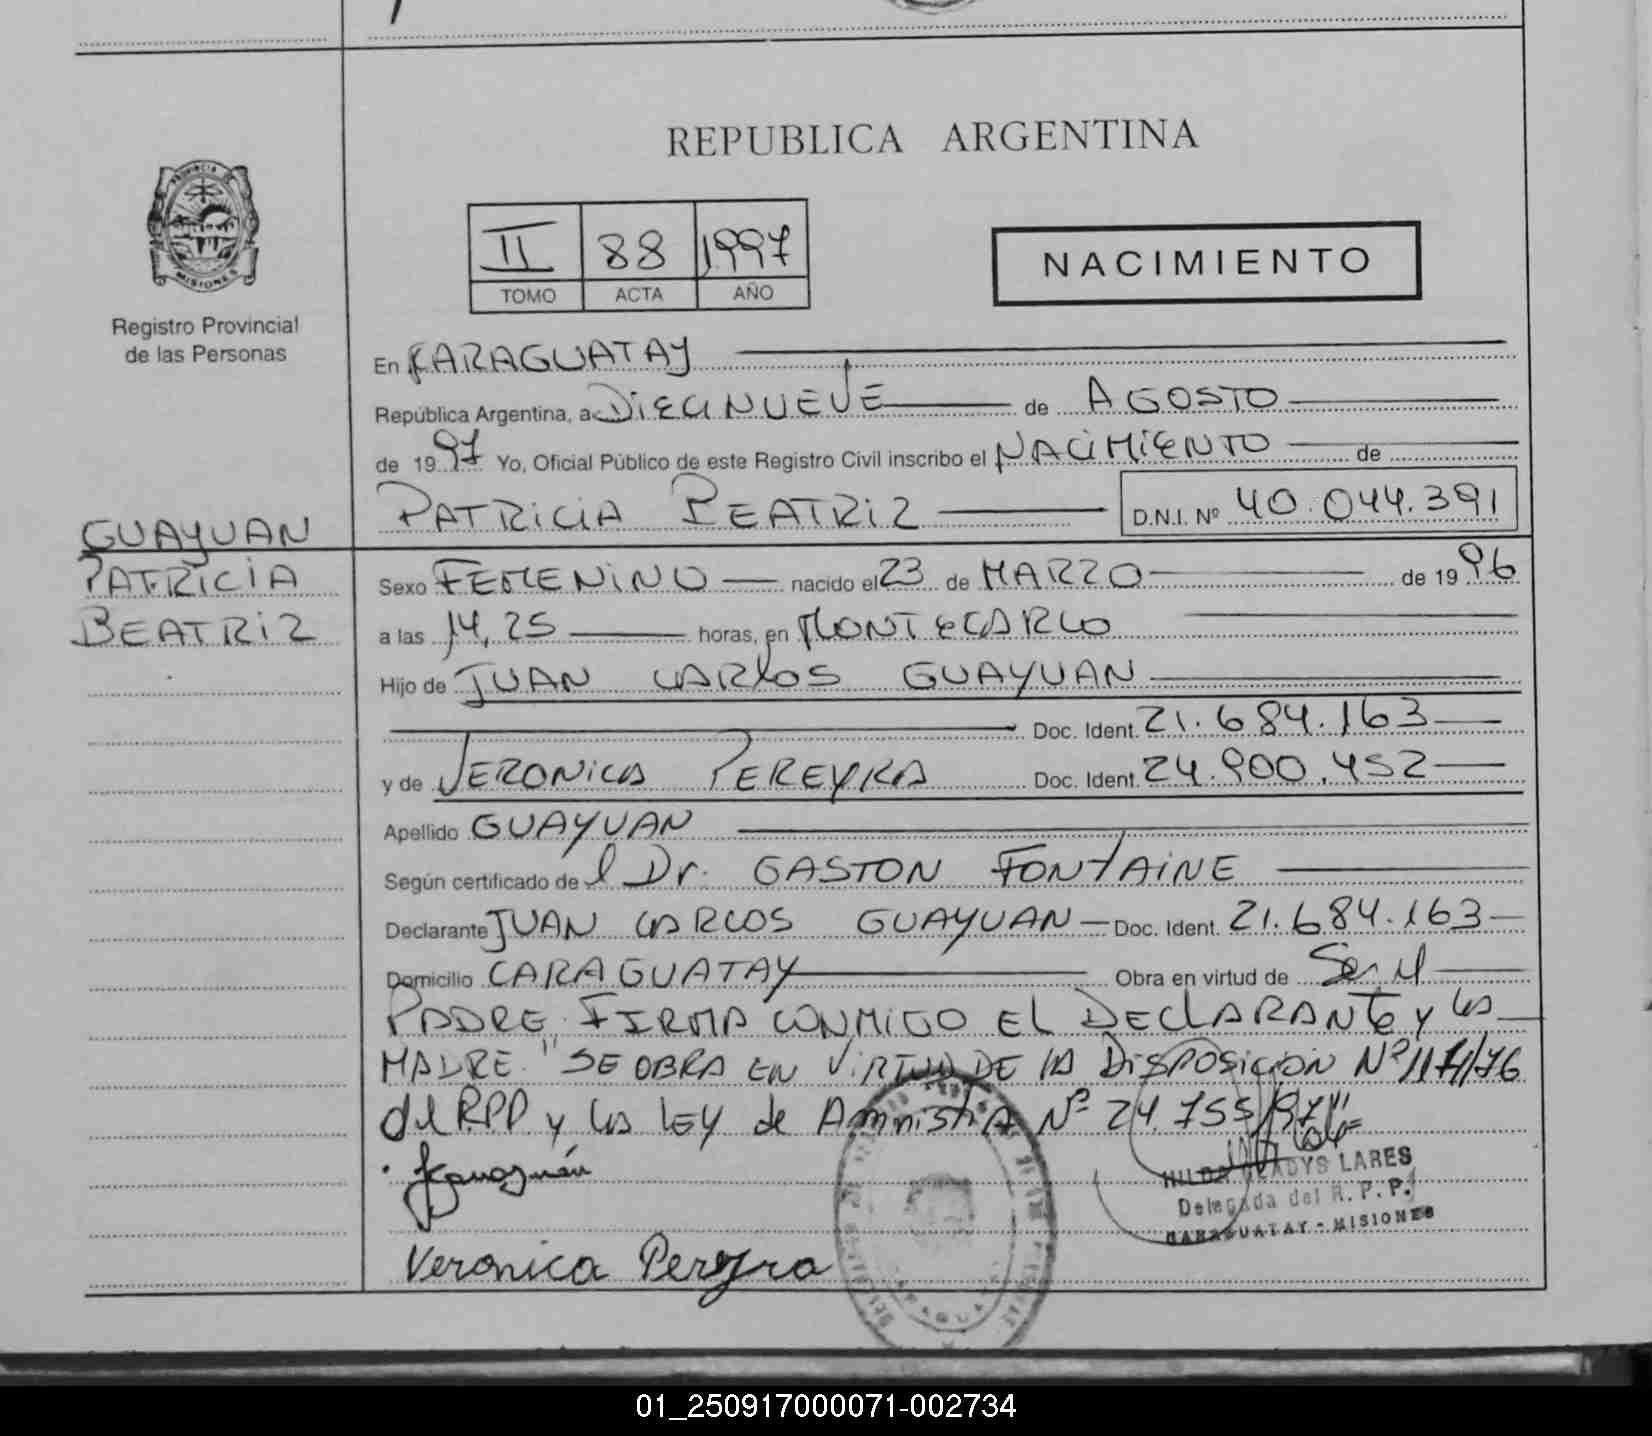 REPUBLICA ARGENTINA
PROVINCIA DE
MISIONES
Registro Provincial
de las Personas
II 88 1997
TOMO ACTA AÑO
NACIMIENTO
En CARAGUATAY
República Argentina, a DIECINUEVE de AGOSTO
de 1997 Yo, Oficial Público de este Registro Civil inscribo el NACIMIENTO de
PATRICIA BEATRIZ D.N.I. Nº 40.044.391
GUAYUAN
PATRICIA
BEATRIZ
Sexo FEMENINO nacido el 23 de MARZO de 1996
a las 14,25 horas, en MONTECARLO
Hijo de JUAN CARLOS GUAYUAN
Doc. Ident. 21.684.163
y de VERONICA PEREYRA Doc. Ident. 24.900.452
Apellido GUAYUAN
Según certificado de l Dr. GASTON FONTAINE
Declarante JUAN CARLOS GUAYUAN Doc. Ident. 21.684.163
Domicilio CARAGUATAY Obra en virtud de Ser el
PADRE. FIRMA CONMIGO EL DECLARANTE y LA
MADRE. "SE OBRA EN VIRTUD DE LA DISPOSICION Nº
del RPP y LA LEY de AMNISTIA Nº 24.755/97"
Veronica Pereyra
HILDA GLADYS LARES
Delegada del R.P.P.
CARAGUATAY - MISIONES
01_250917000071-002734